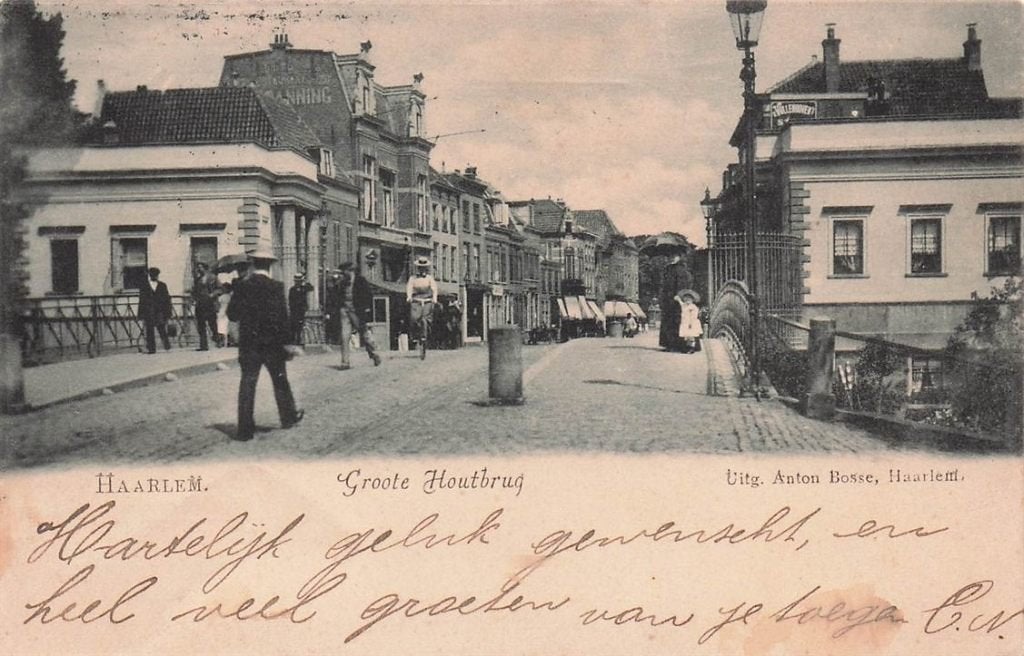 ANNING
HAARLEM.
Groote Houtbrug
Uitg. Anton Bosse, Haarlem.
Hartelijk geluk gewenscht, en
heel veel groeten van je toegen C.N.